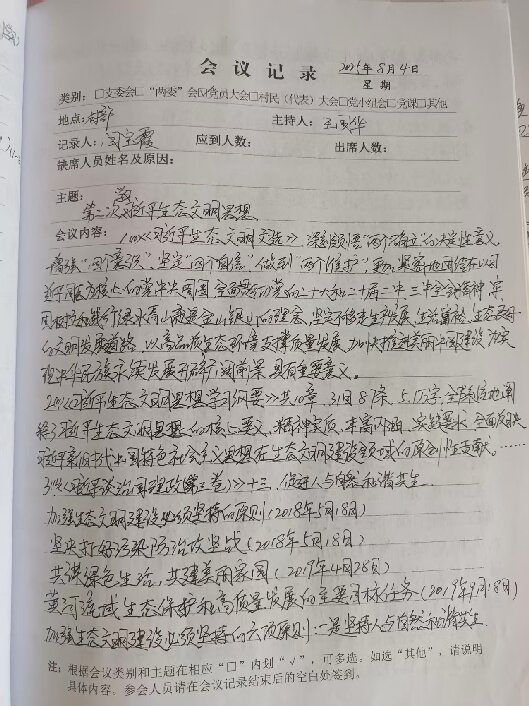 会议记录 2025年8月4日
星期
类别：□支委会□“两委”会☑党员大会□村民（代表）大会□党小组会□党课□其他
地点：村部 主持人：
记录人： 应到人数： 出席人数：
缺席人员姓名及原因：
主题： 学习
第二次 习近平生态文明思想
会议内容：1、《习近平生态文明文选》，深刻领悟“两个确立”的决定性意义
增强“四个意识”、坚定“四个自信”做到“两个维护”更加紧密地团结在以习
近平同志为核心的党中央周围，全面贯彻党的二十大和二十届二中、三中全会精神，牢
固树立和践行绿水青山就是金山银山的理念，坚定不移走生产发展、生活富裕、生态良好
的文明发展道路，以高品质生态环境支撑高质量发展，加快推进美丽中国建设
具有重要意义。
2、《习近平生态文明思想学习纲要》共10章、31目8条、5.1万字，全面系统地阐
释了习近平生态文明思想的核心要义、精神实质、丰富内涵、实践要求，全面反映
习近平新时代中国特色社会主义思想在生态文明建设领域的原创性贡献……
3、《习近平谈治国理政第三卷》十三、促进人与自然和谐共生
加强生态文明建设必须坚持的原则（2018年5月18日）
坚决打好污染防治攻坚战（2018年5月18日）
共谋绿色生活，共建美丽家园（2019年4月28日）
黄河流域生态保护和高质量发展的主要目标任务（2019年9月18日）
加强生态文明建设必须坚持的六项原则：一是坚持人与自然和谐共生
注：根据会议类别和主题在相应“□”内划“√”，可多选，如选“其他”，请说明
具体内容。参会人员请在会议记录结束后的空白处签到。